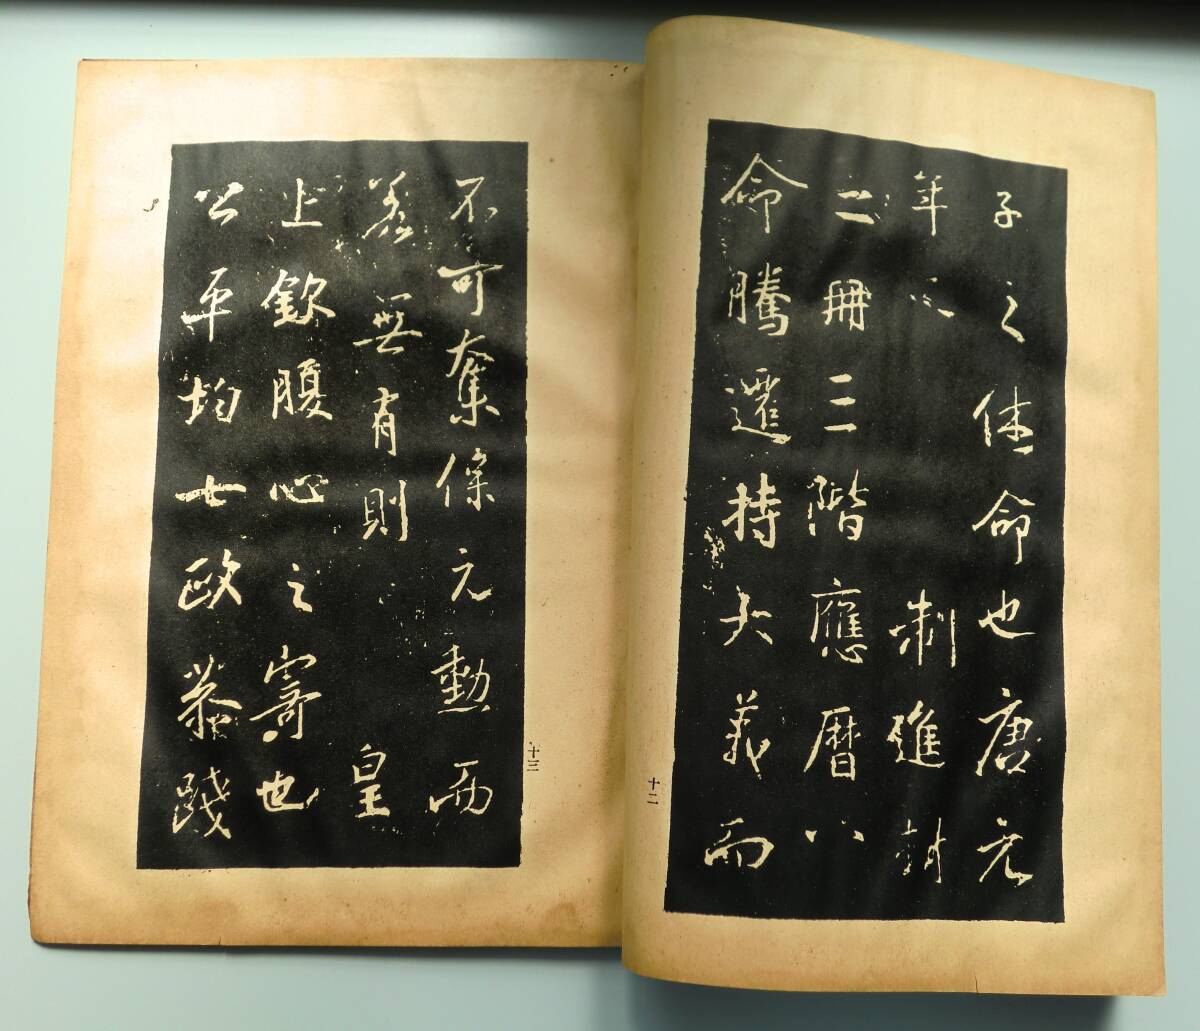 子之休命也唐元
年 制進封
二冊三階應曆八
命騰遷持大義而
十二
不可奪保元勳而
若無有則 皇
上欽腹心之寄也
公平均七政恭踐
十三